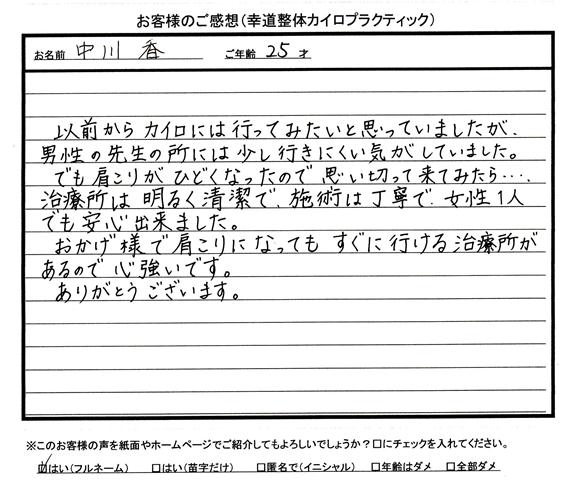 お客様のご感想(幸道整体カイロプラクティック)
お名前 中川 香 ご年齢 25 才
以前から カイロには 行ってみたいと思っていましたが、
男性の先生の所には 少し行きにくい気がしていました。
でも肩こりが ひどくなったので 思い切って来てみたら‥‥、
治療所は 明るく清潔で、施術は丁寧で、女性1人
でも安心出来ました。
おかげ様で肩こりになっても すぐに行ける治療所が
あるので 心強いです。
ありがとうございます。
※このお客様の声を紙面やホームページでご紹介してもよろしいでしょうか?☐にチェックを入れてください。
☑はい(フルネーム) ☐はい(苗字だけ) ☐匿名で(イニシャル) ☐年齢はダメ ☐全部ダメ